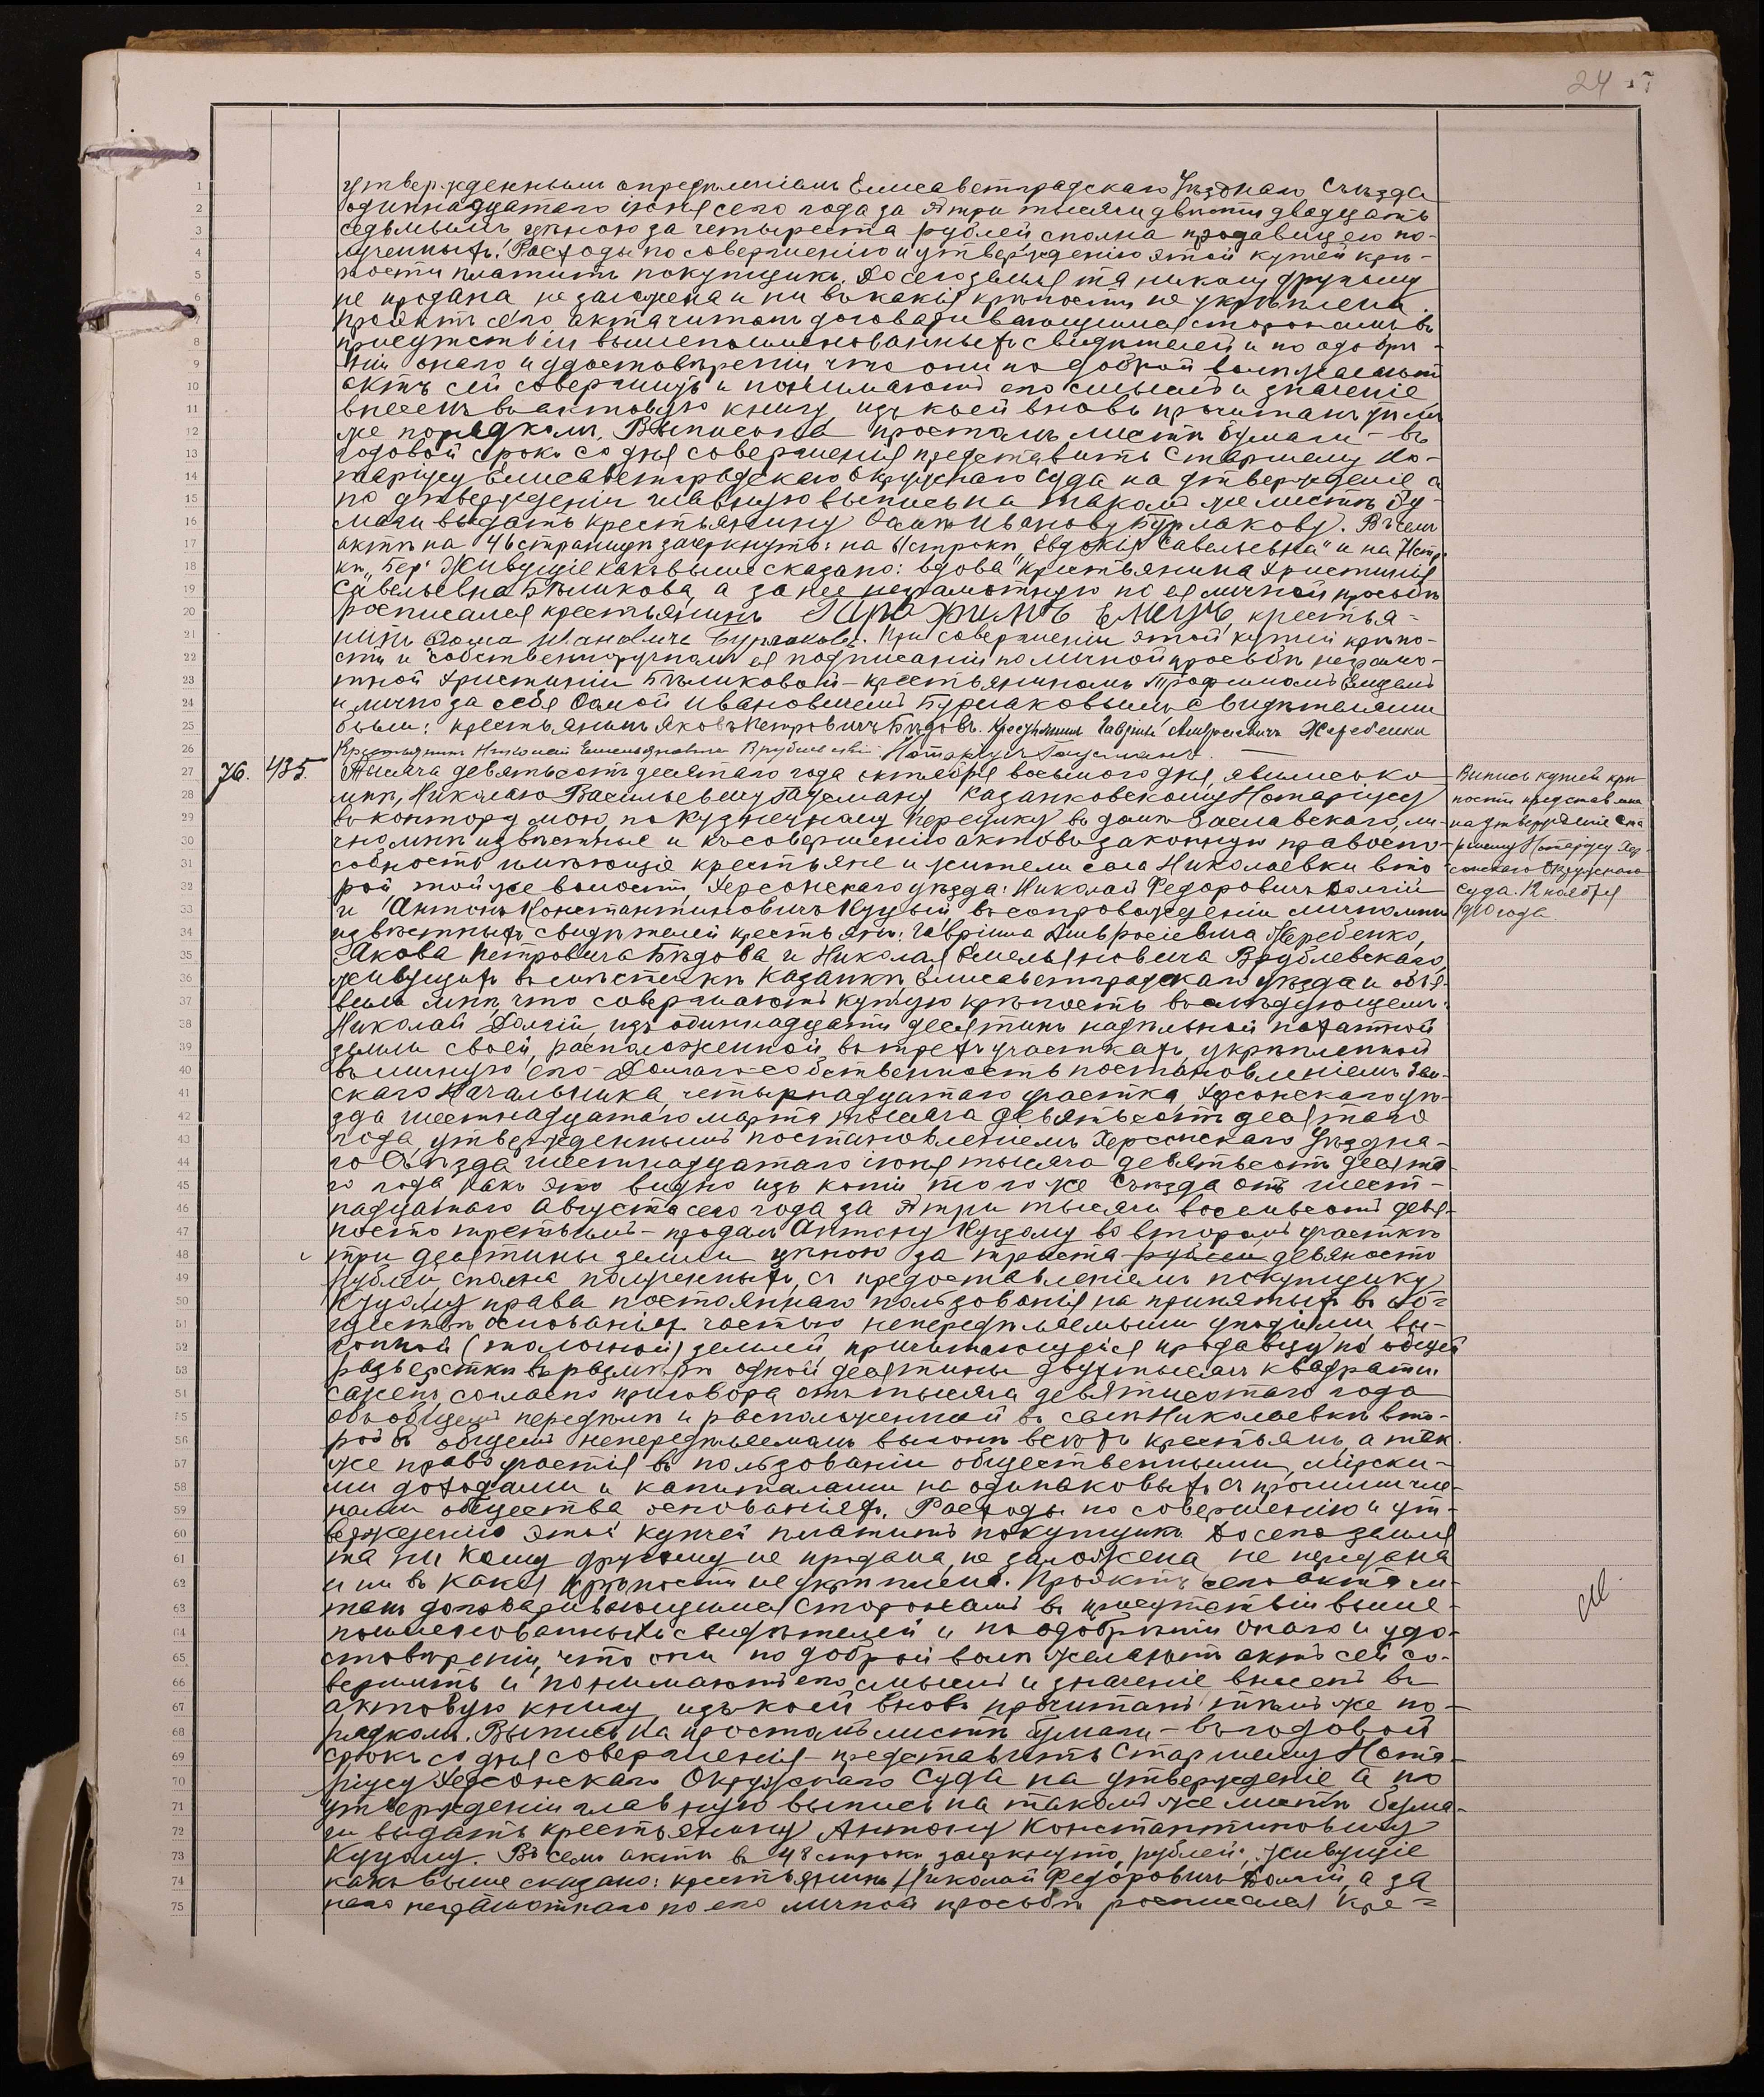 24
утвержденнымъ опредѣленіемъ Елисаветградскаго Уѣзднаго Съѣзда
одиннадцатаго іюня сего года за № три тысячи двѣсти двадцать
седьмымъ, цѣною за четыреста рублей, сполна продавицею по-
лученныхъ. Расходы по совершенію и утвержденію этой купчей крѣ-
пости платитъ покупщикъ. До сего земля та никому другому
не продана, не заложена и ни въ какія крѣпости не укрѣплена.
Проэктъ сего акта читанъ договаривающимся сторонамъ въ
присутствіи вышепоименованныхъ свидѣтелей и по одобре-
ніи онаго и удостовѣреніи что они по доброй волѣ желаютъ
актъ сей совершить и понимаютъ его смыслъ и значеніе
внесенъ въ актовую книгу, изъ коей вновь прочитанъ тѣмъ
же порядкомъ. Выпись на простомъ листѣ бумаги - въ
годовой срокъ со дня совершенія представить Старшему Но-
таріусу Елисаветградскаго Окружнаго Суда на утвержденіе а
по утвержденіи главную выпись на такомъ же листѣ бу-
маги выдать крестьянину Фомѣ Иванову Бурлакову. Въ семъ
актѣ на 46 страницѣ зачеркнуто: на строкѣ „Евдокія Савельевна" и на стро-
кѣ „Бер". Живущіе какъ выше сказано: вдова крестьянина Христинія
Савельевна Бѣликова, а за нее неграмотную по ея личной просьбѣ
росписался крестьянинъ Трофимъ Емецъ, крестья-
нинъ Фома Ивановичъ Бурлаковъ. При совершеніи этой купчей крѣпо-
сти и собственноручномъ ея подписаніи по личной просьбѣ неграмо-
тной Христиніи Бѣликовой - крестьяниномъ Трофимомъ Емцемъ
и лично за себя Фомой Ивановичемъ Бурлаковымъ свидѣтелями
были: крестьянинъ Яковъ Петровичъ Бѣдовъ. Крестьянинъ Гавріилъ Амвросіевичъ Жеребенко
Крестьянинъ Николай Емельяновичъ Врублевскій. Нотаріусъ Гаусманъ.
76. 435. Тысяча девятьсотъ десятаго года октября восьмого дня, явились ко
мнѣ, Николаю Васильевичу Гаусману, Казанковскому Нотаріусу
въ контору мою, по Кузнечному переулку въ домѣ Заславскаго, ли-
чно мнѣ извѣстные и къ совершенію актовъ законную правоспо-
собность имѣющіе крестьяне и жители села Николаевки вто-
рой, той же волости, Херсонскаго уѣзда: Николай Федоровичъ Долгій
и Антонъ Константиновичъ Куцый, въ сопровожденіи лично мнѣ
извѣстныхъ свидѣтелей крестьянъ: Гавріила Амвросіевича Жеребенко,
Якова Петровича Бѣдова и Николая Емельяновича Врублевскаго,
живущихъ въ мѣстечкѣ Казанкѣ, Елисаветградскаго уѣзда и объя-
вили мнѣ, что совершаютъ купчую крѣпость въ слѣдующемъ:
Николай Долгій, изъ одиннадцати десятинъ надѣльной пахатной
земли своей, расположенной въ трехъ участкахъ, укрѣпленной
въ личную его - Долгаго - собственность постановленіемъ Зем-
скаго Начальника, четырнадцатаго участка, Херсонскаго уѣ-
зда шестнадцатаго марта тысяча девятьсотъ десятаго
года, утвержденнымъ постановленіемъ Херсонскаго Уѣздна-
го Съѣзда шестнадцатаго іюня тысяча девятьсотъ десята-
го года какъ это видно изъ копіи того же Съѣзда отъ шест-
надцатаго Августа сего года за № три тысячи восемьсотъ девя-
носто третьимъ - продалъ Антону Куцому во второмъ участкѣ
три десятины земли цѣною за триста рублей девяносто
рублей, сполна полученныхъ, съ предоставленіемъ покупщику
Куцому права постояннаго пользованія на принятыхъ въ об-
ществѣ основаніяхъ частью непередѣляемыми угодьями, вы-
гонной (толочной) землей, причитающейся продавцу по общей
разверсткѣ въ размѣрѣ одной десятины двухъ тысячъ квадратн.
саженъ, согласно приговора отъ тысяча девятисотаго года
объ общемъ передѣлѣ и расположенной въ селѣ Николаевкѣ вто-
рой въ общемъ непередѣляемомъ выгонѣ всѣхъ крестьянъ, а так-
же право участія въ пользованіи общественными, мірски-
ми доходами и капиталами на одинаковыхъ съ прочими чле-
нами общества основаніяхъ. Расходы по совершенію и ут-
вержденію этой купчей платитъ покупщикъ. До сего земля
та ни кому другому не продана, не заложена, не передана
и ни въ какія крѣпости не укрѣплена. Проэктъ сего акта чи-
танъ договаривающимся сторонамъ въ присутствіи выше-
поименованныхъ свидѣтелей и по одобреніи онаго и удо-
стовѣреніи, что они по доброй волѣ желаютъ актъ сей со-
вершить и понимаютъ его смыслъ и значеніе внесенъ въ
актовую книгу, изъ коей вновь прочитанъ тѣмъ же по-
рядкомъ. Выпись на простомъ листѣ бумаги - въ годовой
срокъ со дня совершенія - представить Старшему Нота-
ріусу Херсонскаго Окружнаго Суда на утвержденіе а по
утвержденіи главную выпись на такомъ же листѣ бума-
ги выдать крестьянину Антону Константиновичу
Куцому. Въ семъ актѣ въ 48 строкѣ зачеркнуто „рублей". Живущіе
какъ выше сказано: крестьянинъ Николай Федоровичъ Долгій, а за
него неграмотнаго по его личной просьбѣ росписался кре-
Выпись купчей крѣ-
пости представлена
на утвержденіе Ста-
ршему Нотаріусу Хер-
сонскаго Окружнаго
Суда. 12 ноября
1910 года.